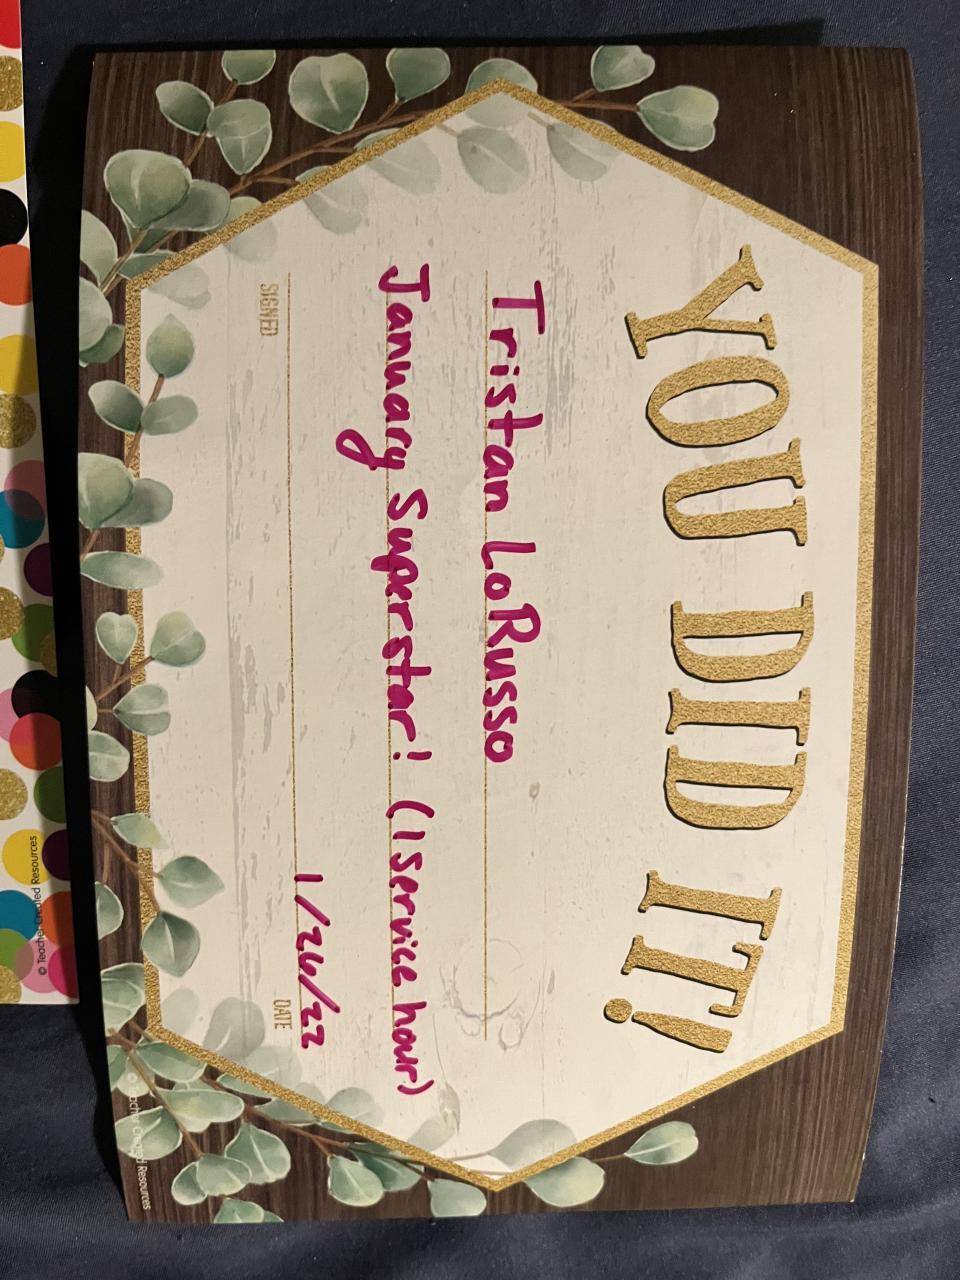 YOU DID IT!
Tristan LoRusso
January Superstar! (1 service hour)
1/26/22
SIGNED
DATE
© Teacher Created Resources
© Teacher Created Resources